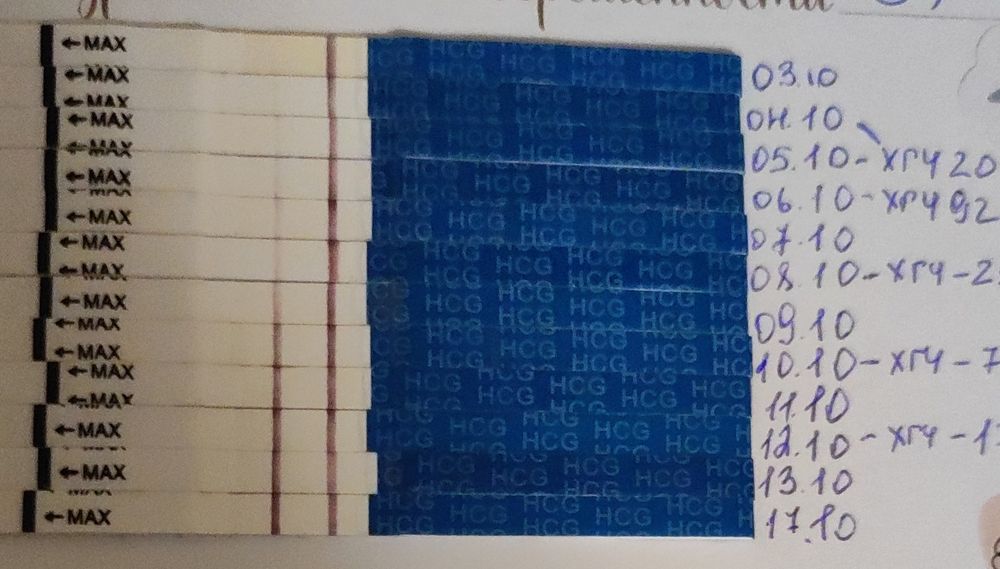 ←MAX
03.10
←MAX
←MAX
04.10
←MAX
←MAX
05.10 - ХГЧ 20
←MAX
06.10 - ХГЧ 92
←MAX
07.10
←MAX
←MAX
08.10 - ХГЧ - 2
←MAX
09.10
←MAX
←MAX
10.10 - ХГЧ - 7
←MAX
←MAX
11.10
←MAX
12.10 - ХГЧ - 1
←MAX
13.10
←MAX
17.10
HCG HCG HCG HCG HCG